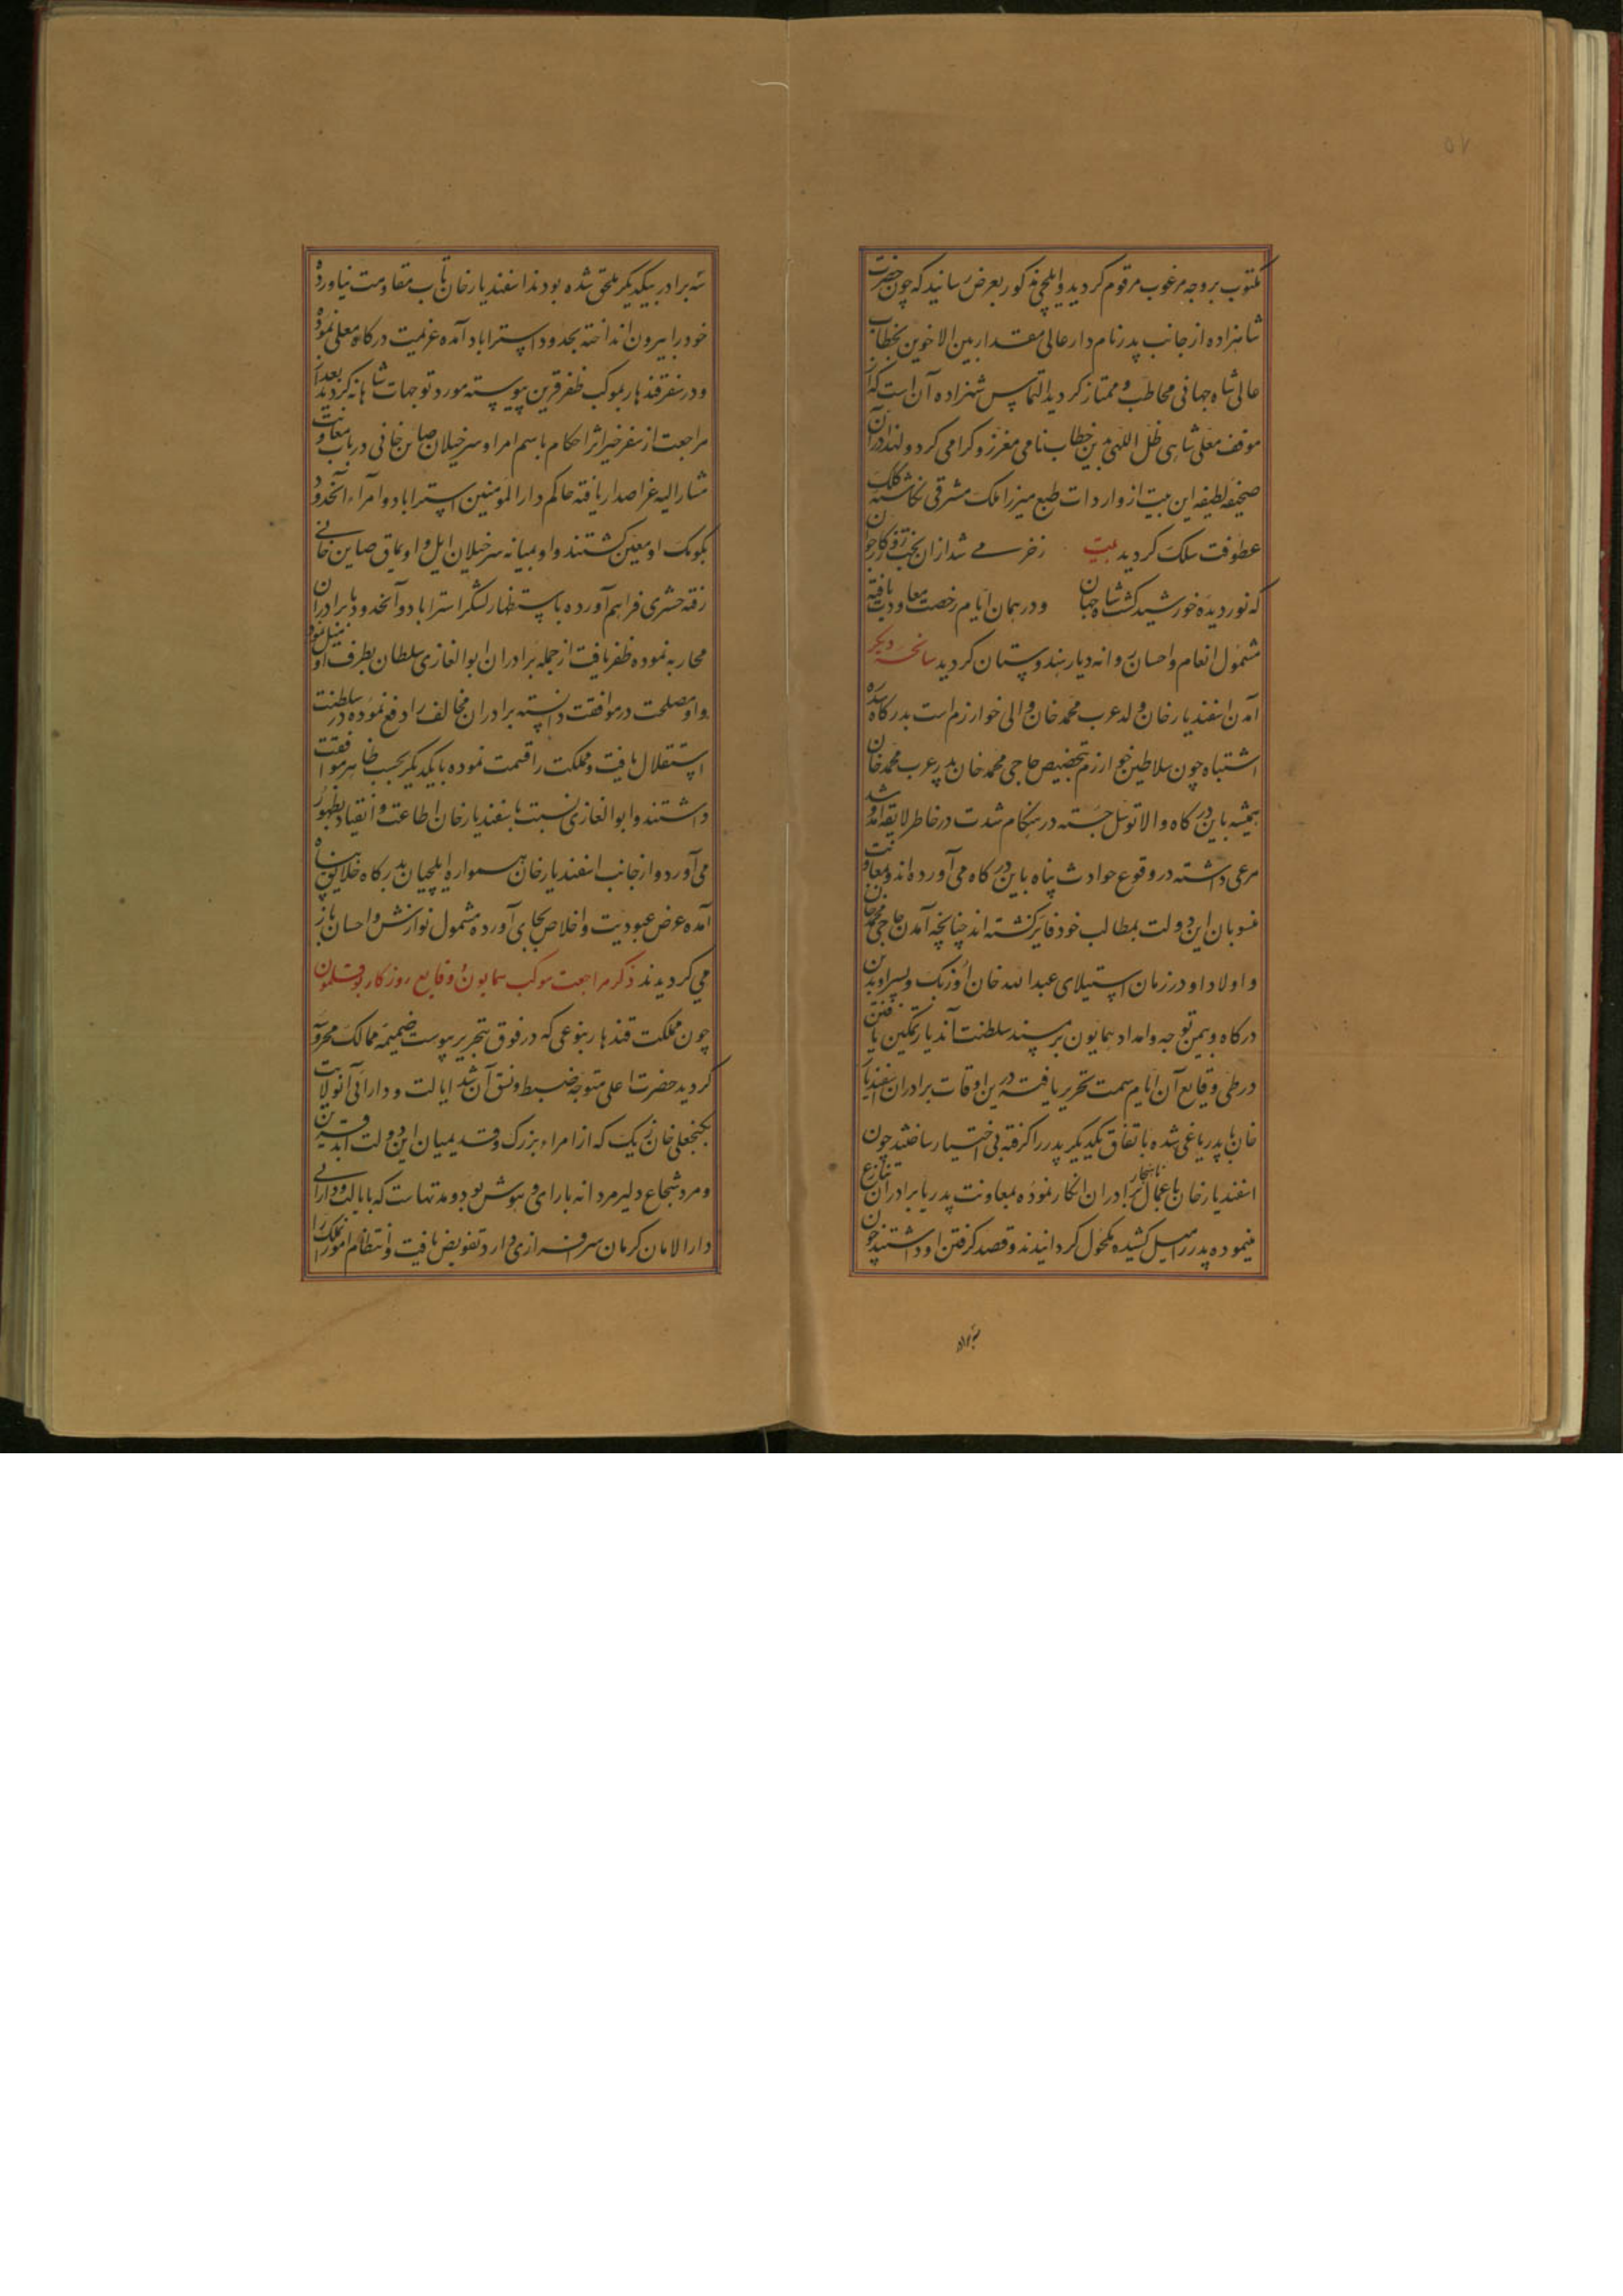 ۵۷
مکتوب بروجه مرغوب مرقوم کردید و ایلچی مذکور بعرض رسانید که چون حضرت
شاهزاده از جانب پدر نام دار عالی مقدار بین الاخوین بخطاب
عالی شاه جهانی مخاطب و ممتاز کردید التماس شهزاده آن است که از
موقف معلی شاهی ظل اللهی بدین خطاب نامی معزز و کرامی کردد و لهذا در آن
صحیفه لطیفه این بیت از واردات طبع میرزا ملک مشرقی نکاشته کلک
عطوفت سلک کردید بیت ز خرمی شد ازان بخت روزکار جوان
که نور دیده خورشید کشت شاه جهان و در همان ایام رخصت معاودت یافته
مشمول انعام و احسان روانه دیار هندوستان کردید سانحه دیکر
آمدن اسفندیار خان ولد عرب محمد خان والی خوارزم است بدرکاه سدره
اشتباه چون سلاطین خوارزم بتخصیص حاجی محمد خان پدر عرب محمد خان
همیشه باین درکاه والا توسل جسته در هنکام شدت در خاطر لایقه آمد و شد
مرعی داشته در وقوع حوادث پناه باین درکاه می آورده اند و بمعاونت
منسوبان این دولت بمطالب خود فایز کشته اند چنانچه آمدن حاجی محمد خان
و اولاد او در زمان استیلای عبدالله خان اوزبک و پسر او بدین
درکاه و بیمن توجه و امداد همایون بر مسند سلطنت آن دیار تمکین یافتن
در طی وقایع آن ایام سمت تحریر یافته درین اوقات برادران اسفندیار
خان با پدر یاغی شده باتفاق یکدیکر پدر را کرفته بی اختیار ساختند چون
اسفندیار خان باعمال ناهنجار برادران انکار نموده بمعاونت پدر با برادران تنازع
مینموده پدر را میل کشیده مکحول کردانیدند و قصد کرفتن او داشتند چون
سه برادر
سه برادر بیکدیکر ملحق شده بودند اسفندیار خان تاب مقاومت نیاورده
خود را بیرون انداخته بحدود استراباد آمده عزیمت درکاه معلی نموده
و در سفر قندهار بموکب ظفر قرین پیوسته مورد توجهات شاهانه کردید بعد از
مراجعت از سفر خیر اثر احکام باسم امرا و سرخیلان صاین خانی در باب معاونت
مشار الیه عز اصدار یافته حاکم دار المومنین استراباد و امراء آنحدود
بکومک او معین کشتند و او بمیانه سرخیلان ایل و اویماق صاین خانی
رفته حشری فراهم آورده باستظهار لشکر استراباد و آنحدود با برادران
محاربه نموده ظفر یافت از جمله برادران ابوالغازی سلطان بطرف او میل نمود
و او مصلحت در موافقت دانسته برادران مخالف را دفع نموده در سلطنت
استقلال یافت و مملکت را قسمت نموده با یکدیکر بحسب ظاهر موافقت
داشتند و ابوالغازی نسبت باسفندیار خان اطاعت و انقیاد بظهور
می آورد و از جانب اسفندیار خان همواره ایلچیان بدرکاه خلایق پناه
آمده عرض عبودیت و اخلاص بجای آورده مشمول نوازش و احسان باز
می کردیدند ذکر مراجعت موکب همایون و وقایع روزکار بوقلمون
چون مملکت قندهار بنوعی که در فوق بتحریر پیوست ضمیمه ممالک محروسه
کردید حضرت اعلی متوجه ضبط و نسق آن شد ایالت و دارائی آنولایت
بکنجعلی خان زیک که از امراء بزرک و قدیمیان این دولت ابد قرین
و مرد شجاع دلیر مردانه با رای و هوش بود و مدتهاست که بایالت و دارائی
دار الامان کرمان سرافرازی دارد تفویض یافت و انتظام امور آن ملک را